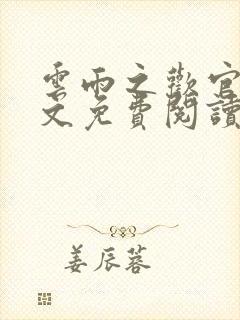 雲雨之歡官
文免費閱讀
姜辰蓉